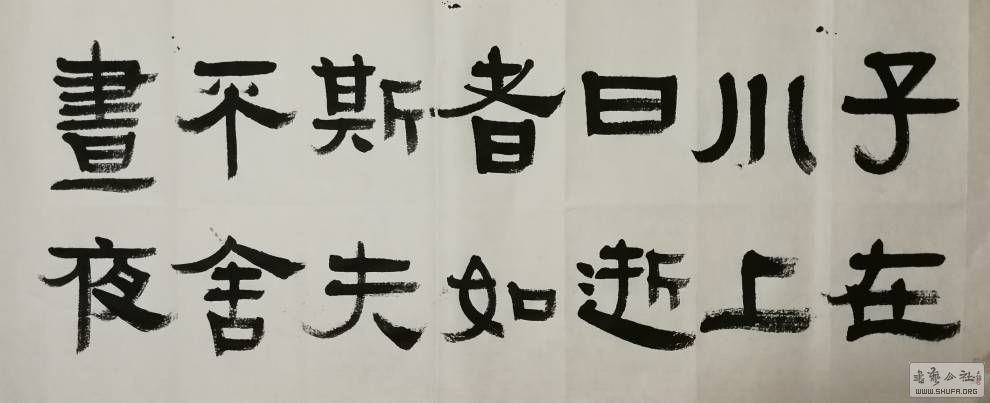 子在
川上
曰逝
者如
斯夫
不舍
晝夜
书艺公社
WWW.SHUFA.ORG